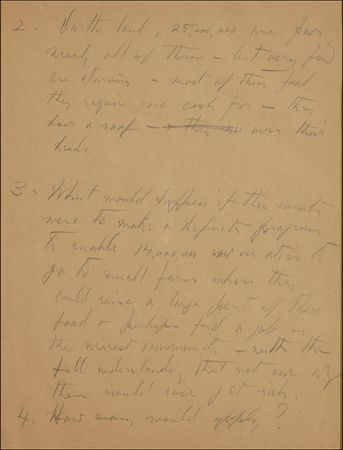 2. On the land, 25,000,000 are poor
nearly all of them - but very few
are starving - most of their food
they require no cash for - they
have a roof - over their
heads.
3. What would happen if this country
were to make a definite program
to enable 14,000,000 now in cities to
go to small farms where they
could raise a large part of their
food & perhaps find a job in
the nearest community - with the
full understanding that not one of
them would ever get rich.
4. How many would apply?